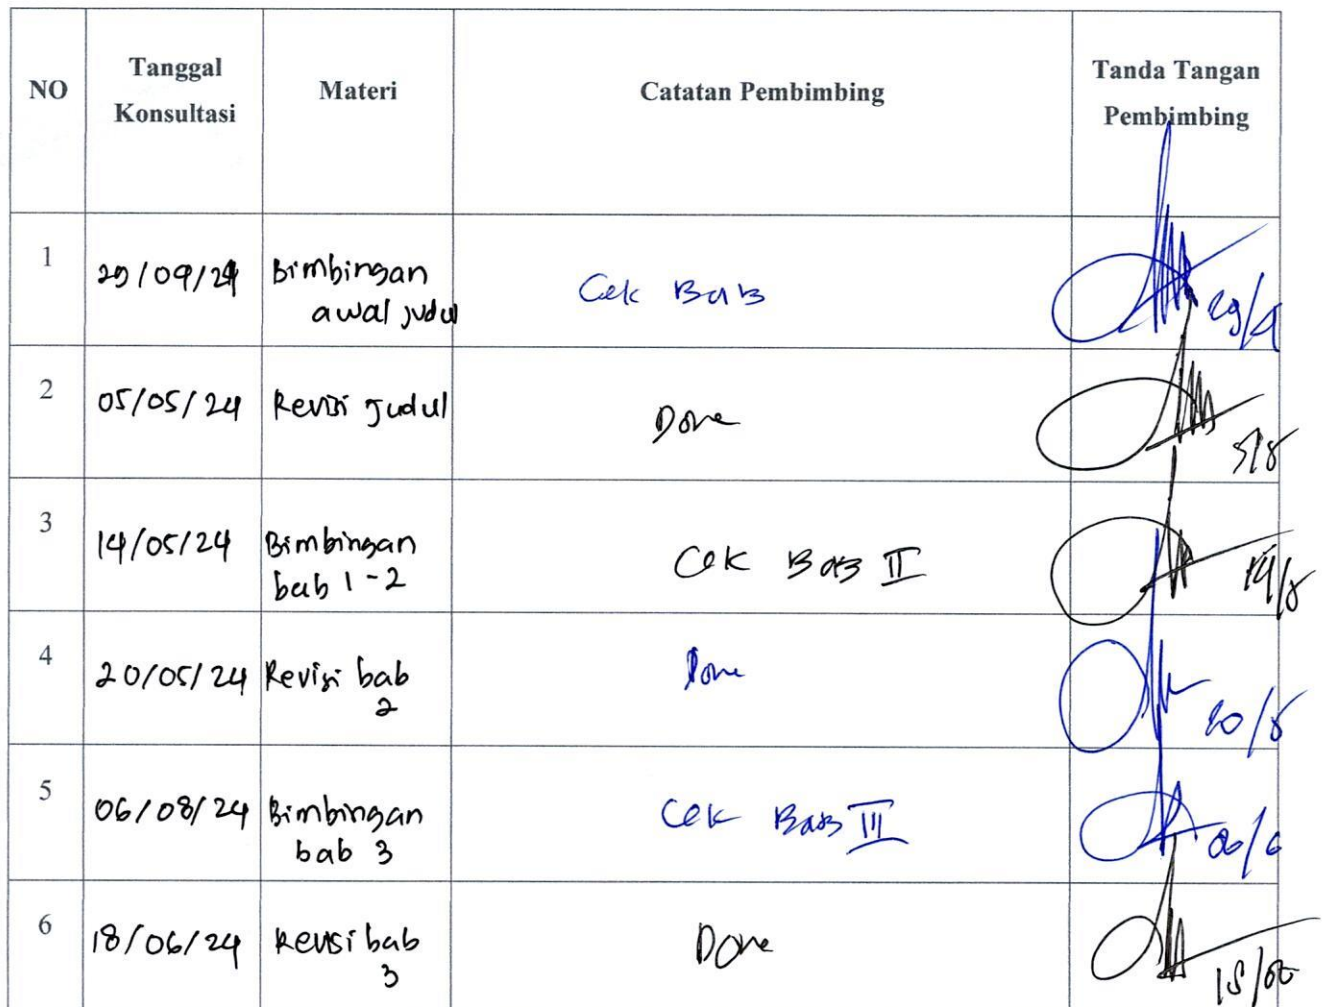 NO
Tanggal
Konsultasi
Materi
Catatan Pembimbing
Tanda Tangan
Pembimbing
1
29/09/24
Bimbingan
awal judul
Cek Bab
29/4
2
05/05/24
Revisi Judul
Done
5/5
3
14/05/24
Bimbingan
bab 1-2
Cek Bab II
14/5
4
20/05/24
Revisi bab
2
Done
20/5
5
06/08/24
Bimbingan
bab 3
Cek Bab III
06/6
6
18/06/24
Revisi bab
3
Done
18/06